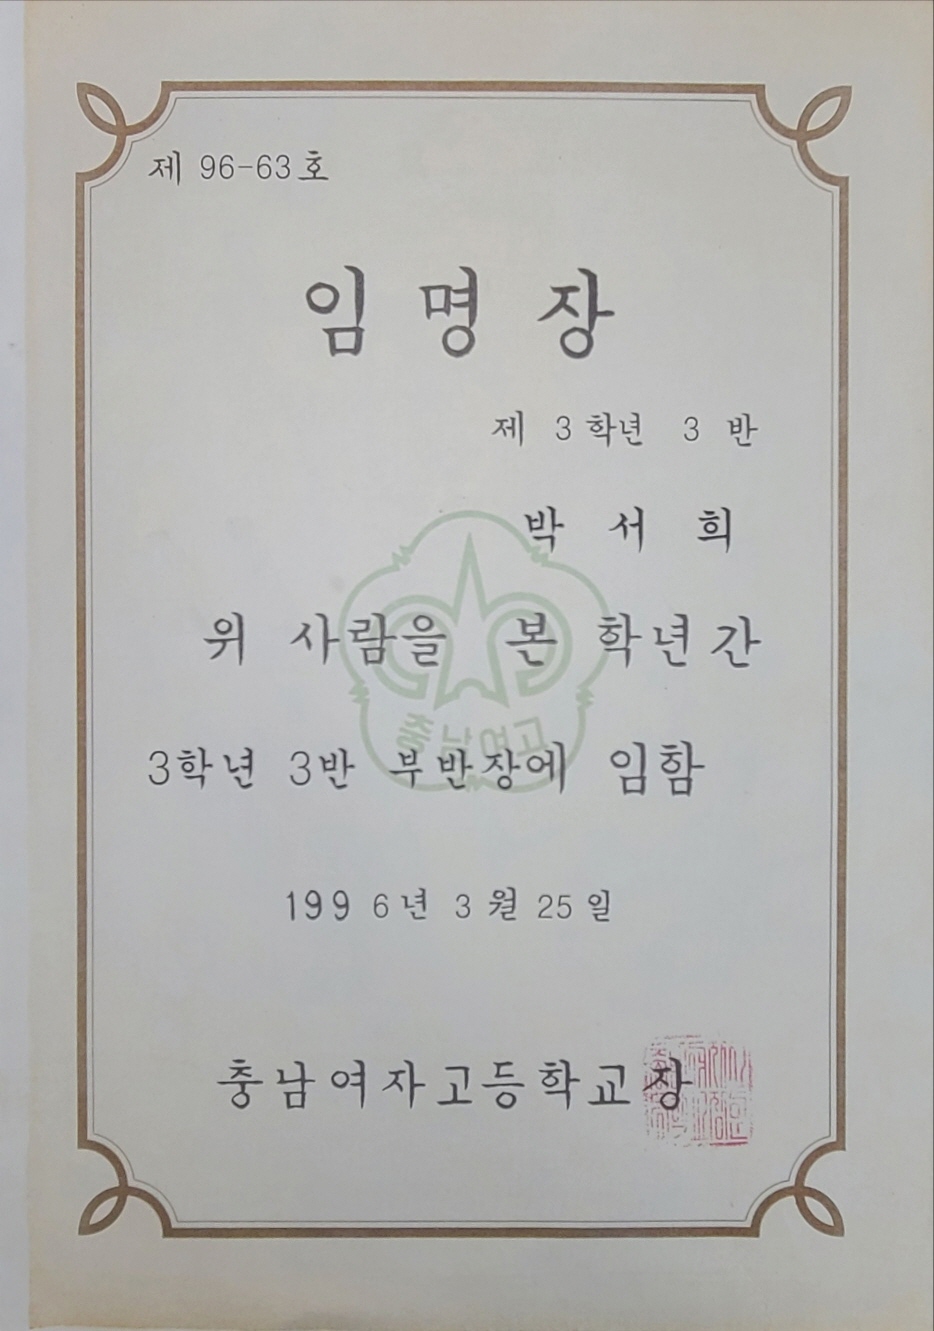 제 96-63 호
임 명 장
제 3 학년 3 반
박 서 희
위 사람을 본 학년간
충남여고
3학년 3반 부반장에 임함
199 6 년 3 월 25 일
충남여자고등학교장